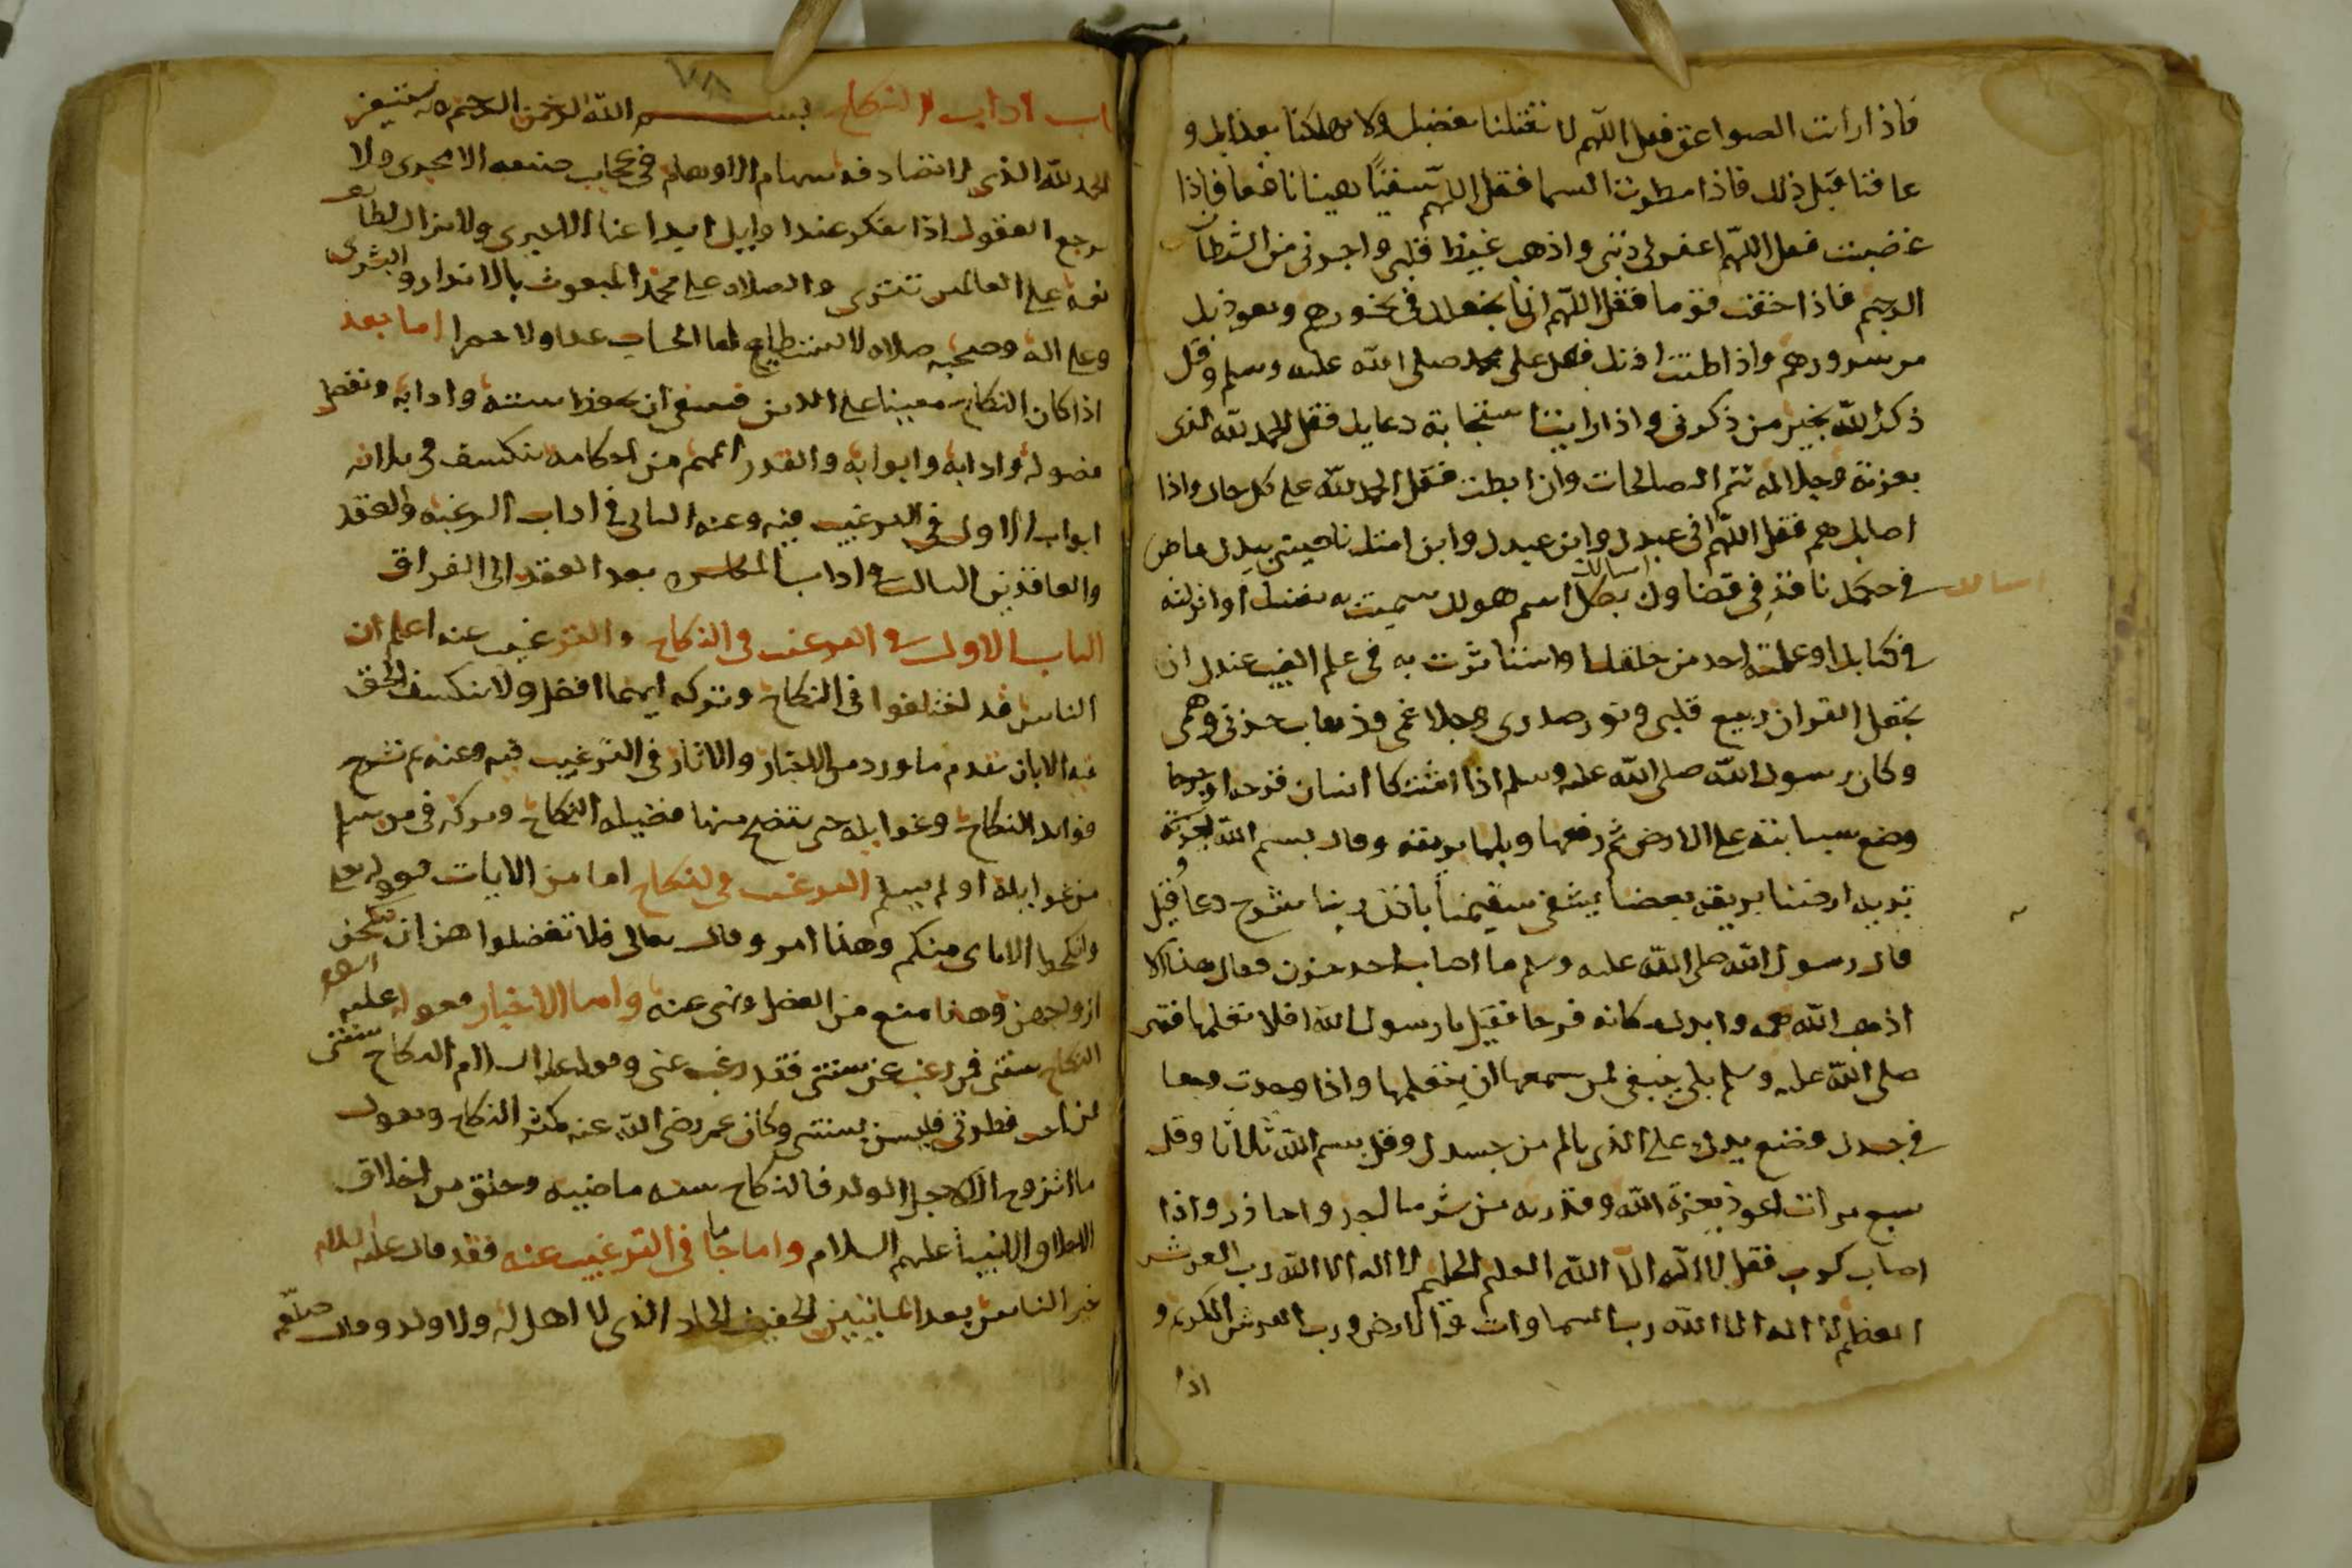 فاذا رات الصواعق فعل اللهم لا تقتلنا بغضبك ولا تهلكنا بعذابك و
عافنا قبل ذلك فاذا مطرت السما فقل اللهم سقيًا هينا نافعا فاذا
غضبت فعل اللهم اغفر لى ذنبى واذهب غيظ قلبى واجرنى من الشطان
الرجيم فاذا خفت قوما فقل اللهم انا نجعلك فى نحورهم ونعوذ بك
من سرورهم واذا طنت اذنك فصل على محمد صلى الله عليه وسلم وقل
ذكر الله بخير من ذكرنى واذا رايت استجابة دعايك فقل الحمد لله الذى
بعزته وجلاله تتم الصالحات وان ابطت فقل الحمد لله على كل حال واذا
اصابك هم فقل اللهم انى عبدك وابن عبدك وابن امتك ناصيتى بيدك ماض
فى حكمك نافذ فى قضاوك اسالك بكل اسم هو لك سميت به نفسك او انزلته
فى كتابك او علمته احد من خلقك او استاثرت به فى علم الغيب عندك ان
تجعل القران ربيع قلبى ونور صدرى وجلا غمى وذهاب حزنى وهمى
وكان رسول الله صلى الله عليه وسلم اذا اشتكا انسان قرحه او جرحا
وضع سبابته على الارض ثم رفعها وبلها بريقه وقال بسم الله
تربه ارضنا بريقه بعضنا يشفى سقيمنا باذن ربنا
قال رسول الله صلى الله عليه وسلم ما اصاب احد حزن فقال هذا الا
اذهب الله همه وابدله مكانه فرحا فقيل يا رسول الله افلا نتعلمها فقال
صلى الله عليه وسلم بلى ينبغى لمن سمعها ان يتعلمها واذا وجدت وجعا
فى جسدك وضع يدك على الذى يالم من جسدك وقل بسم الله ثلاثا وقل
سبع مرات اعوذ بعزة الله وقدرته من شر ما اجد واحاذر واذا
اصابك كرب فقل لا اله الا الله العلى الحليم لا اله الا الله رب العرش
العظيم لا اله الا الله رب السماوات والارض ورب العرش الكريم و
اذا
اسالك
باب اداب النكاح بسم الله الرحمن الرحيم وبه نستعين
الحمد لله الذى لا تصادف سهام الاوهام فى عجايب صنعه الا مجرى ولا
يرجع العقول اذا تفكر عند اوايل الا حيرى ولا تزال لطائف
نعمه على العالمين تتترى والصلاه على محمد المبعوث بالانذار والبشرى
وعلى اله وصحبه صلاه لا يستطيع لها الحساب عدا ولا حصرا اما بعد
اذا كان النكاح معينا على الدين فينبغى ان يحفظ سنته وادابه وتفصل
فصوله وادابه وابوابه والقدر المهم من احكامه ينكشف فى ثلاثه
ابواب الاول فى الترغيب فيه وعنه الثانى فى اداب الرغبه والعقد
والعاقدين الثالث فى اداب المعاشره بعد العقد الى الفراق
الباب الاول فى الترغيب فى النكاح والترغيب عنه اعلم ان
الناس قد اختلفوا فى النكاح وتركه ايهما افضل ولا ينكشف الحق
فيه الا بان نقدم ما ورد من الاخبار والاثار فى الترغيب فيه وعنه ثم نشرح
فوايد النكاح وغوايله حتى يتضح منها فضيله النكاح وتركه فى من سلم
من غوايله او لم يسلم الترغيب فى النكاح اما من الايات قوله تعالى
وانكحوا الاياى منكم وهذا امر وقال تعالى فلا تعضلوهن ان ينكحن
ازواجهن وهذا منع من العضل ونهى عنه واما الاخبار فقوله عليه السلام
النكاح سنتى فمن رغب عن سنتى فقد رغب عنى وقوله عليه السلام النكاح سنتى
فمن احب فطرتى فليستن بسنتى وكان عمر رضى الله عنه يكثر النكاح ويقول
ما اتزوج الا لاجل الولد فالنكاح سنه ماضيه وخلق من اخلاق
الانبيا عليهم السلام واما ما جا فى الترغيب عنه فقد قال عليه السلام
خير الناس بعد المايتين الخفيف الحاد الذى لا اهل له ولا ولد وقال صلعم